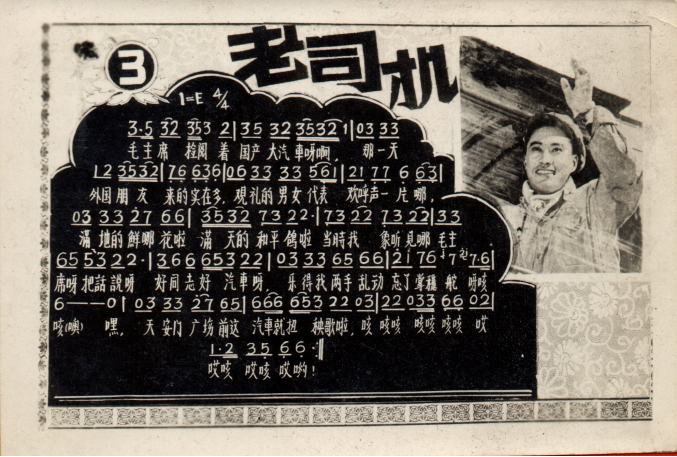 3
老司机
1=E 4/4
3·5 32 353 2 | 35 32 3532 1 | 03 33
毛主席 检阅 着 国产 大汽車呀啊， 那一天
12 3532 | 76 636 | 06 33 33 561 | 21 77 6 63 |
外国 朋友 来的实在多，观礼的男女代表 欢呼声一片哪，
03 33 27 66 | 3532 73 22· | 73 22 73 22 | 33
满地的鲜哪花啦 满天的和平鴿啦 当時我 象听見哪 毛主
65 53 22 · | 36 66 653 22 | 03 33 65 66 | 21 76 7 7·6 |
席呀把話説呀 好同志好 汽車呀 乐得我两手乱动 忘了掌穩舵 呀咳
6 — — 0 | 03 33 27 65 | 666 653 22 03 | 22 033 66 02 |
咳(噢) 嘿， 天安门广场前这 汽車就扭 秧歌啦，咳 咳咳 咳咳咳咳 哎
1·2 35 6 6 · :||
哎咳 哎咳哎哟！